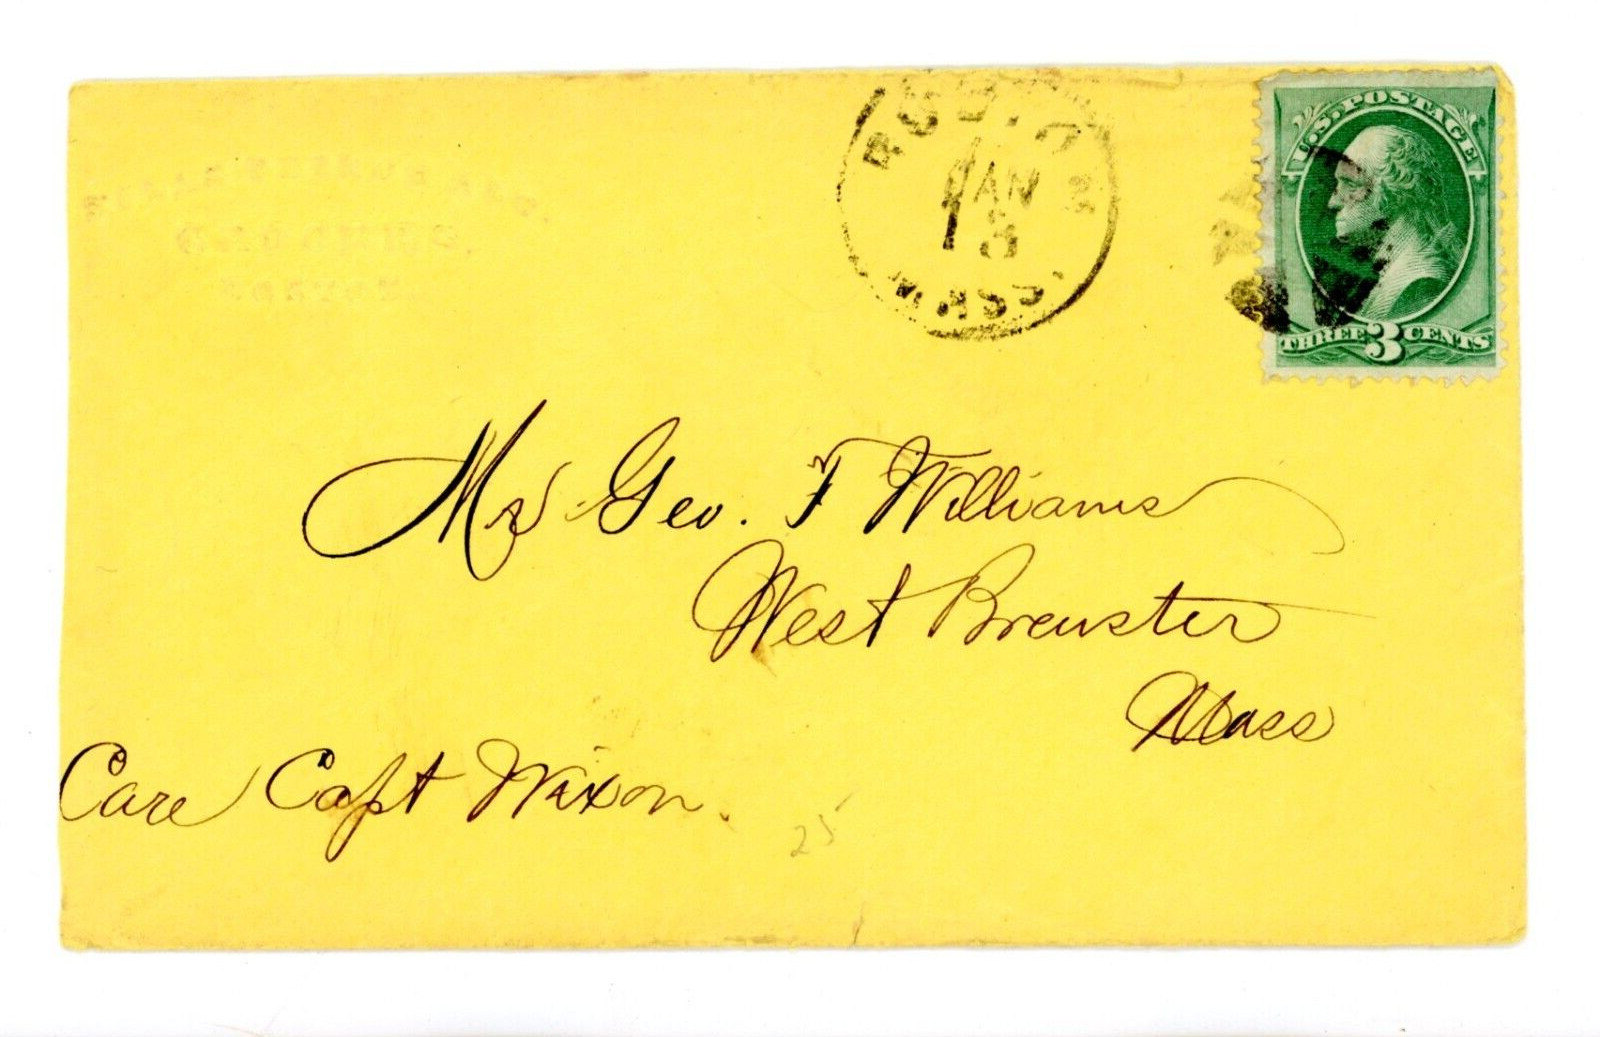 BOSTON
JAN
MASS.
U.S. POSTAGE
THREE 3 CENTS
Mr Geo. F Williams
West Brewster
Mass
Care Capt Nixon.
25